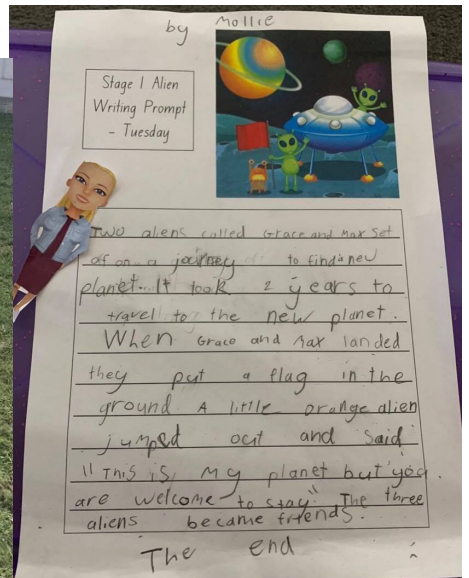 by Mollie
Stage 1 Alien
Writing Prompt
- Tuesday
Two aliens called Grace and Max set
off on a journey to find a new
planet. It took 2 years to
travel to the new planet.
When Grace and Max landed
they put a flag in the
ground. A little orange alien
jumped out and said
"This is my planet but you
are welcome to stay" The three
aliens became friends.
The end